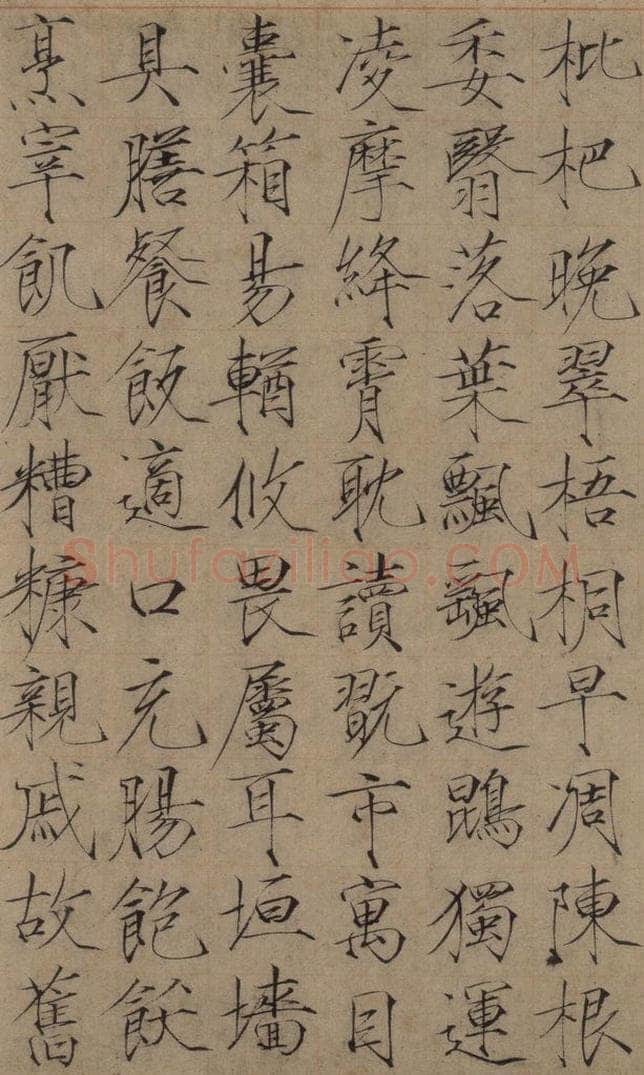 枇杷晩翠梧桐早凋陳根
委翳落葉飄颻遊鵾獨運
凌摩絳霄耽讀翫市寓目
囊箱易輶攸畏屬耳垣墻
具膳餐飯適口充腸飽飫
烹宰飢厭糟糠親戚故舊
Shufaziliao.COM